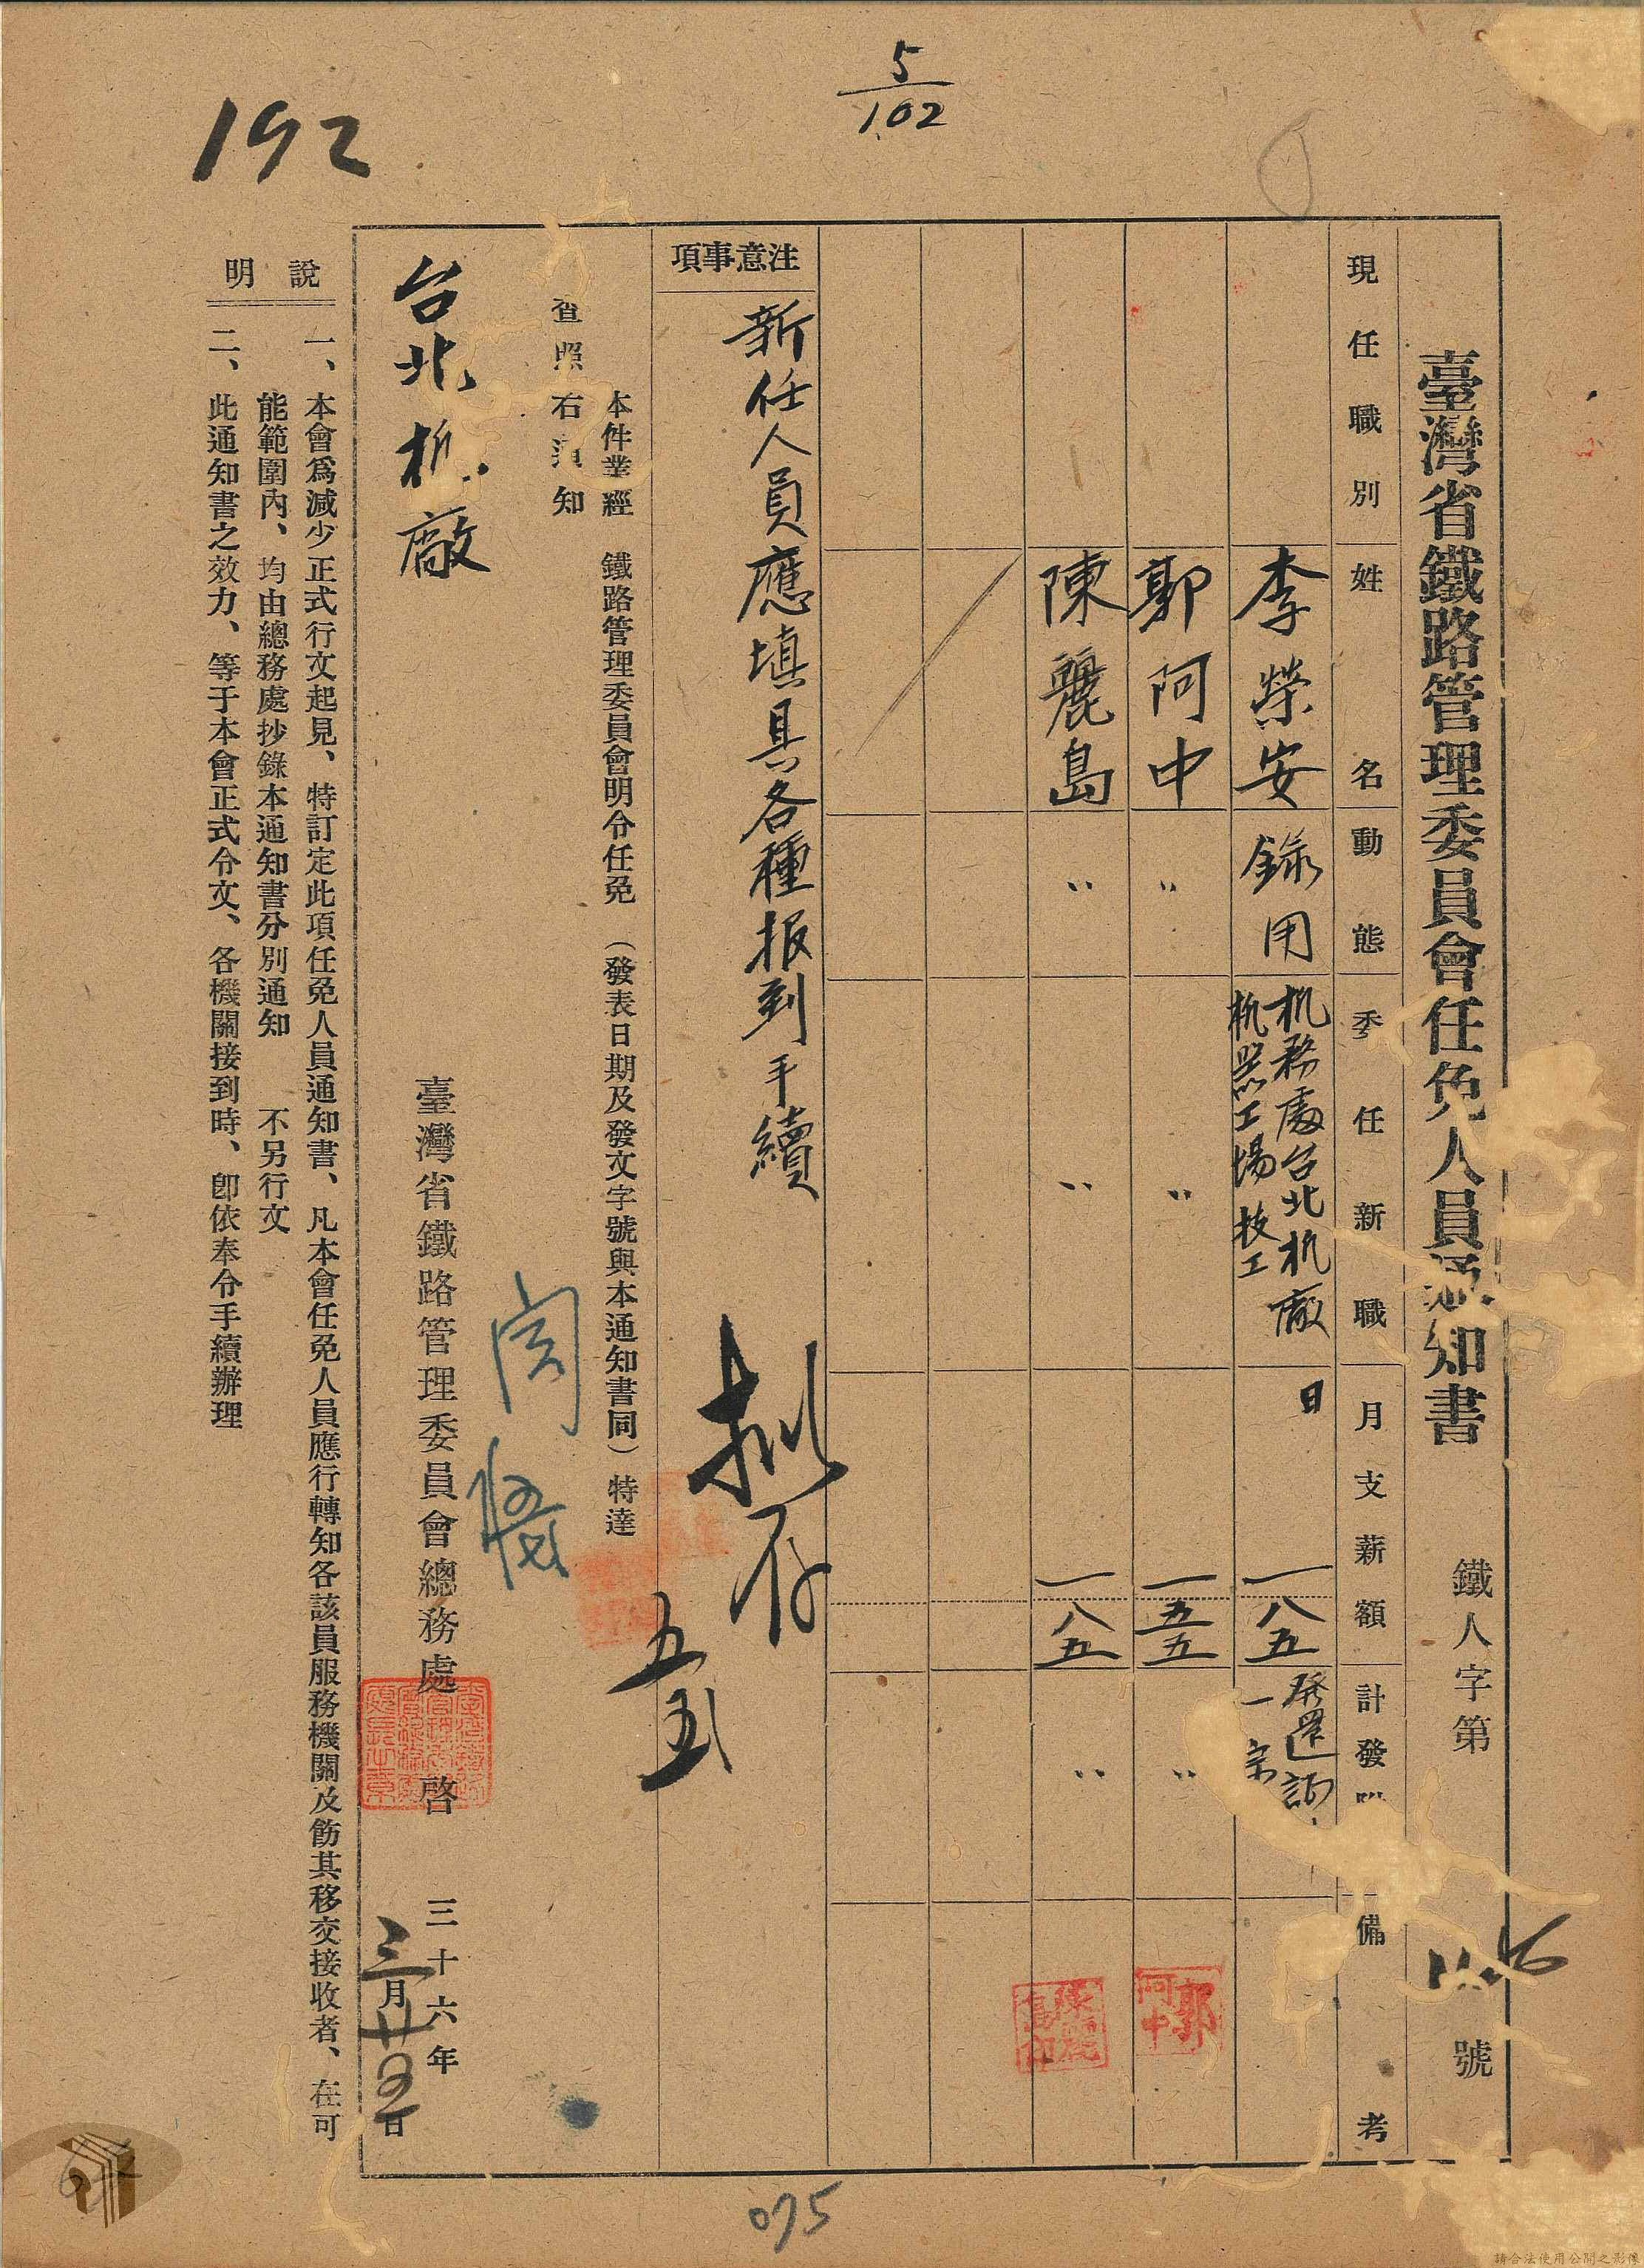 5/102
192
臺灣省鐵路管理委員會任免人員通知書 鐵人字第 號
現任職別 姓名 動態 委任新職 月支薪額 計發 備考
李榮安 錄用 机務處台北机廠 机器工場技工 日 一八五 發還 一宗
郭阿中 〃 〃 一五五 〃
陳麗島 〃 〃 一八五 〃
郭阿中
注意事項
新任人員應填具各種报到手續
拟存
本件業經 鐵路管理委員會明令任免 (發表日期及發文字號與本通知書同) 特達
查照 右須知
台北机廠
臺灣省鐵路管理委員會總務處 啓 三十六年
三月廿五日
說明
一、本會爲減少正式行文起見、特訂定此項任免人員通知書、凡本會任免人員應行轉知各該員服務機關及飭其移交接收者、在可
能範圍內、均由總務處抄錄本通知書分別通知 不另行文
二、此通知書之效力、等于本會正式令文、各機關接到時、卽依奉令手續辦理
075
請合法使用公開之影像